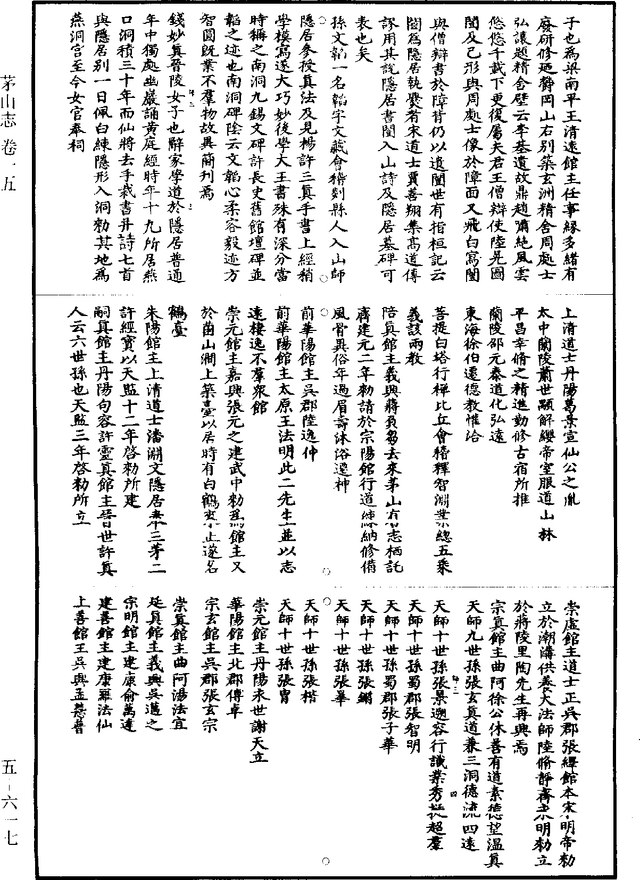 茅山志 卷一五
五－六一七
子也為梁南平王清遠館主任事緣多緒有
廢研修迺欝岡山右別築玄洲精舍周處士
弘讓題精舍壁云李基遺故鼎趙瓛絶風雲
悠悠千載下更復屬夫君王僧辯使陸晃圖
闓及己形與周處士像於障面又飛白寫闓
與僧辯書於障背仍以遺闓世有指桓記云
闓為隱居執爨者宋道士賈善翔集高道傳
謬用其說隱居書闓入山詩及隱居墓碑可
表也矣
孫文韜一名韜字文藏會稽剡縣人入山師
隱居參授真法及見楊許三真手書上經稍
學模寫遂大巧妙後學大王書殊有深分當
時稱之南洞九錫文碑許長史舊館壇碑並
韜之迹也南洞碑陰云文韜心柔容毅迹方
智圓既業不羣物故具簡刊焉
錢妙真晉陵女子也辭家學道於隱居普通
年中獨處幽巖誦黄庭經時年十九所居燕
口洞積三十年而仙將去手裁書并詩七首
與隱居別一日佩白練隱形入洞勑其地為
燕洞宮至今女官奉祠
上清道士丹陽葛景宣仙公之胤
太中蘭陵蕭世顯解纓帝室服道山林
平昌幸脩之精進勤修古宿所推
蘭陵邵元泰道化弘遠
東海徐伯遷德教惟洽
菩提白塔行禪比丘會稽釋智淵業總五乘
義該兩教
陪真館主義興蔣負芻去來茅山有志栖託
齊建元二年勑請於宗陽館行道緣納修備
風骨異俗年過眉壽沐浴遷神
前華陽館主吳郡陸逸仲
前華陽館主太原王法明此二先生並以志
遠棲逸不羣衆館
崇元館主嘉興張元之建武中勑為館主又
於菌山澗上築臺以居時有白鶴來止遂名
鶴臺
朱陽館主上清道士潘淵文隱居弟三茅二
許經寶以天監十二年啓勑所建
嗣真館主丹陽句容許靈真館主晉世許真
人云六世孫也天監三年啓勑所立
崇虛館主道士正吳郡張繹館本宋明帝勑
立於潮溝供養大法師陸脩靜齊永明勑立
於蔣陵里陶先生再興焉
宗真館主曲阿徐公休善有道素德望溫真
天師九世孫張玄真道兼三洞德流四遠
天師十世孫張景遡容行識業秀挺超羣
天師十世孫蜀郡張智明
天師十世孫蜀郡張子華
天師十世孫張鏘
天師十世孫張華
天師十世孫張楷
天師十世孫張胄
崇元館主丹陽永世謝天立
華陽館主北郡傅卓
宗玄館主吳郡張玄宗
崇真館主曲阿湯法宣
延真館主義興吳邁之
宗明館主建康俞萬達
建善館主建康羅法仙
上善館王吳興孟慧普